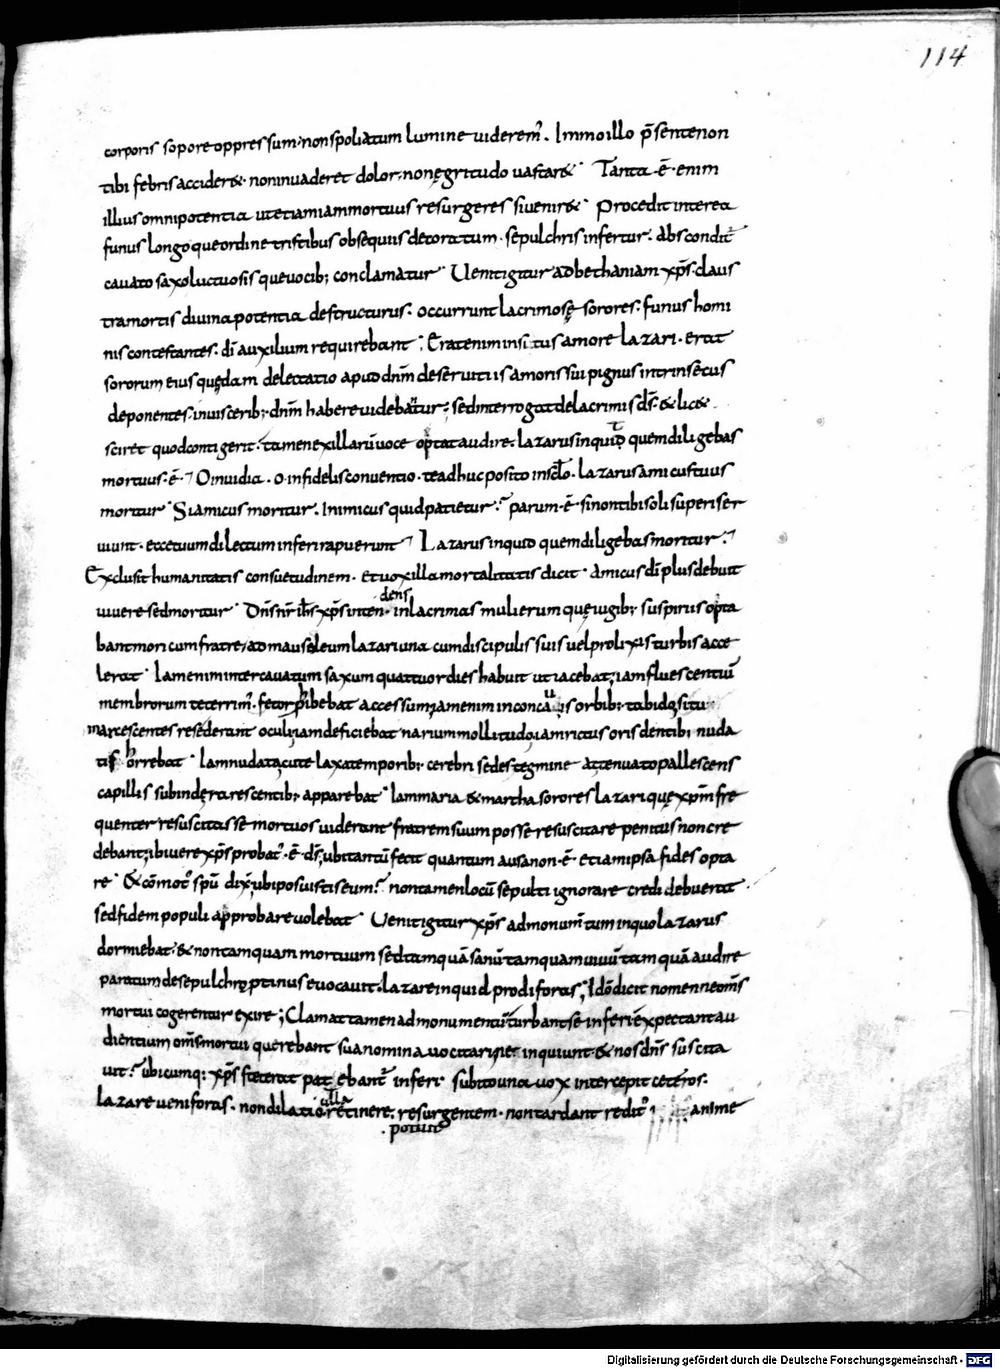 114
corporis sopore oppressum· non spoliatum lumine viderem̄. Immo illo p̄sente non
tibi febris accider&· non invaderet dolor, non ęgritudo vastar&· Tanta ē· enim
illius omnipotentia ut etiam iam mortuus resurgeres si venir&· Procedit interea
funus longoque ordine tristibus obsequiis decoratum· sepulchris infertur· abscondit̄
cavato saxo luctuosisque vocib; conclamatur· Venit igitur ad bethaniam xp̄s· claus
tra mortis divina potentia destructurus· occurrunt lacrimosę sorores· funus homi
nis contestantes· dī auxilium requirebant; Erat enim insitus amore lazari· erat
sororum eius quędam delectatio apud dnm̄ deservitiis amoris sui pignus intrinsecus
deponentes· in viscerib; dnm̄ habere videbat̄ur; sed interrogat de lacrimis ds̄· & lic&
sciret quod contigerit· tamen ex illarū voce optat audire· lazarus inquid quem diligebas
mortuus· ē· O invidia· o infidelis conventio· te adhuc posito in sc̄lo· lazarus amicus tuus
moritur· Si amicus moritur· Inimicus quid patietur? parum· ē· si non tibi soli superi ser
viunt· ecce tuum dilectum inferi rapuerunt Lazarus inquid quem diligebas moritur?
Exclusit humanitatis consuetudinem· et vox illa mortalitatis dicit· Amicus dī plus debuit
vivere sed moritur· Dn̄s nr̄ ih̄s xp̄s inten·
dens
in lacrimas mulierum quę iugib; suspiriis opta
bant mori cum fratre, ad mausoleum lazari una cum discipulis suis vel prolixis turbis acce
lerat· Iam enim inter cavatum saxum quattuor dies habuit ut iacebat; iam fluescentiū
membrorum teterrim̄· fetor phibebat accessum; iam enim in concavis orbib; tabido situ
marcescentes resederant oculi; iam deficiebat narium mollitudo; iam rictus oris dentib; nuda
tis horrebat· Iam nudata cute laxa temporib; cerebri sedes tegmine attenuato pallescens
capillis subinde rarescentib; apparebat· Iam maria & martha sorores lazari quę xpm̄ fre
quenter resuscitasse mortuos viderant fratrem suum posse resuscitare penitus non cre
debant; ibi vere xp̄s probat̄· ē· ds̄; ubi tantū fecit quantum ausa non· ē· etiam ipsa fides opta
re· & cōmot̄ spū dix̄; ubi posuistis eum? non tamen locū sepulti ignorare credi debuerat·
sed fidem populi approbare volebat· Venit igitur xp̄s ad monum̄tum in quo lazarus
dormiebat· & non tamquam mortuum sed tamquā sanū tamquam vivū tamquā audire
paratum de sepulchro ptinus evocavit· lazare inquid prodi foras; Ido dicit nomen ne om̄s
mortui cogerentur exire; Clamat tamen ad monumentū turbant se inferi expectant au
dientium om̄s mortui querebant sua nomina vocitari inquiunt & nos dn̄s suscita
vit? ubicumq; xp̄s steterat pat ebant̄ inferi· subito una vox intercepit ceteros·
lazare veni foras· non dilatio
ulla
retinere; resurgentem· non tardant redit̄ animę
· potuit
Digitalisierung gefördert durch die Deutsche Forschungsgemeinschaft - DFG